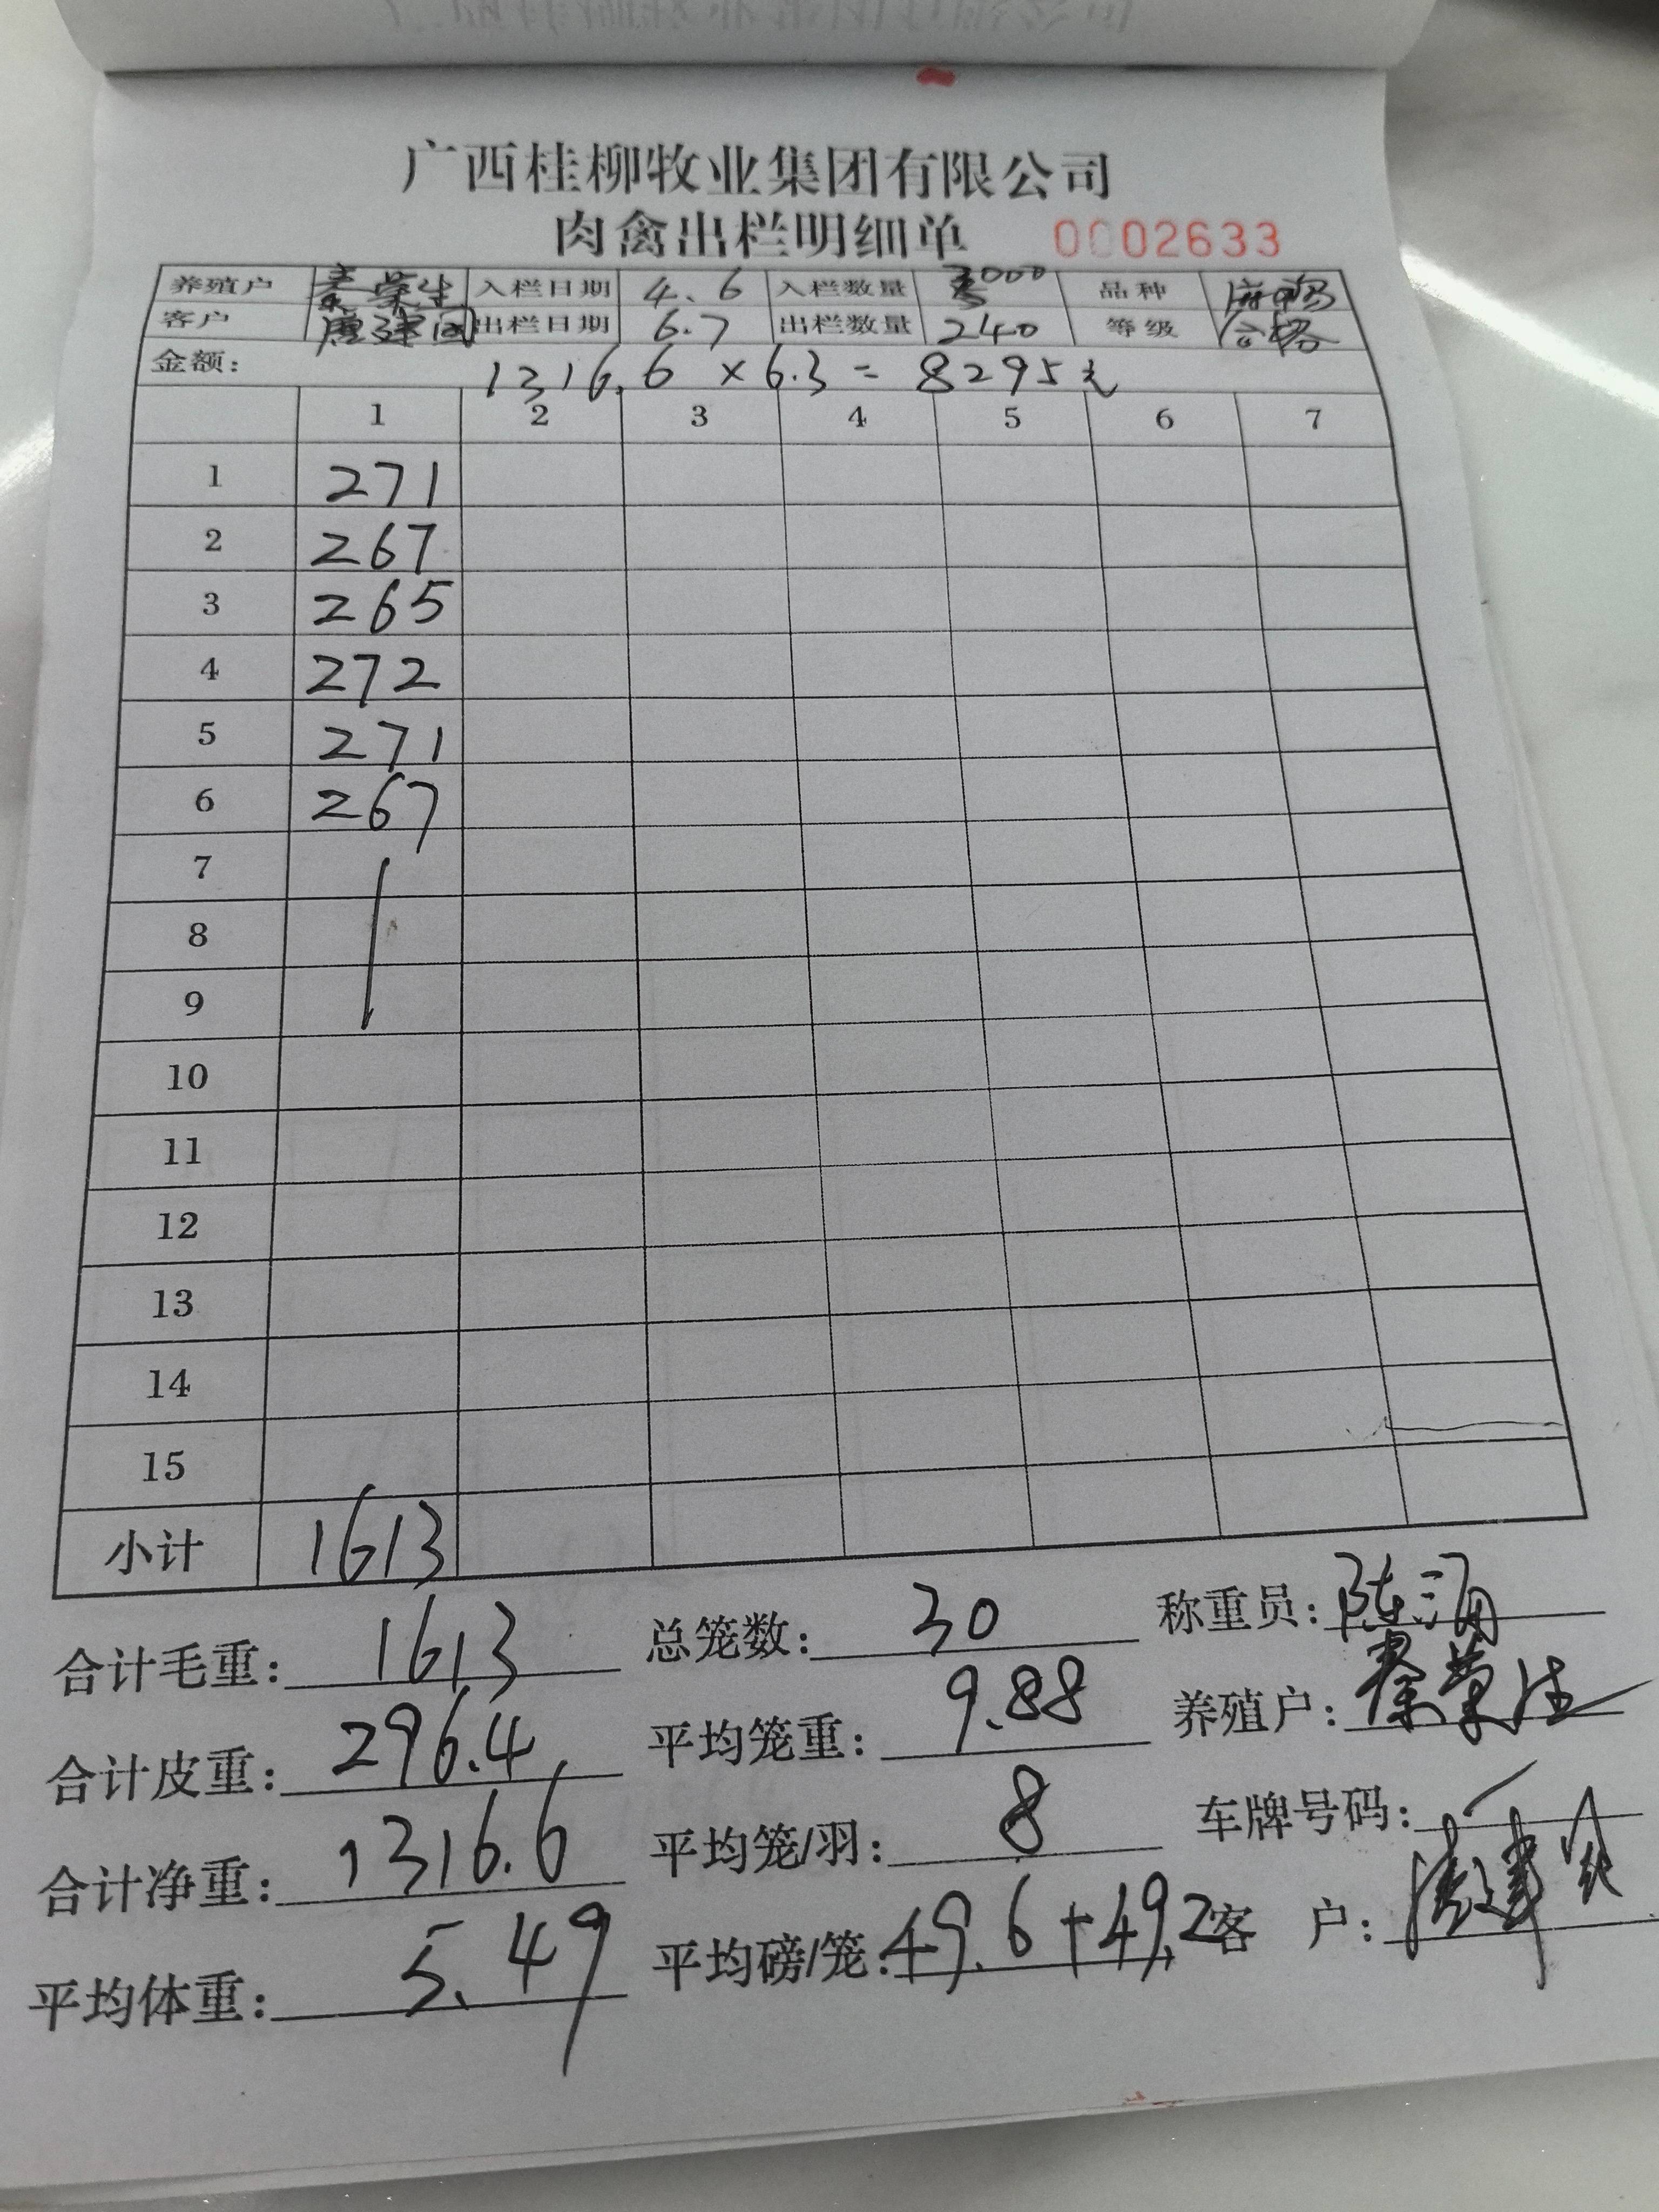 广西桂柳牧业集团有限公司
肉禽出栏明细单 0002633
养殖户 秦荣生 入栏日期 4.6 入栏数量 3000 品种 麻鸭
客户 唐建国 出栏日期 6.7 出栏数量 240 等级 合格
金额: 1316.6 × 6.3 = 8295元
1 2 3 4 5 6 7
1 271
2 267
3 265
4 272
5 271
6 267
7
8
9
10
11
12
13
14
15
小计 1613
合计毛重: 1613 总笼数: 30 称重员: 陈涌
合计皮重: 296.4 平均笼重: 9.88 养殖户: 秦荣生
合计净重: 1316.6 平均笼/羽: 8 车牌号码:
平均体重: 5.49 平均磅/笼: 49.6+49.2 客户: